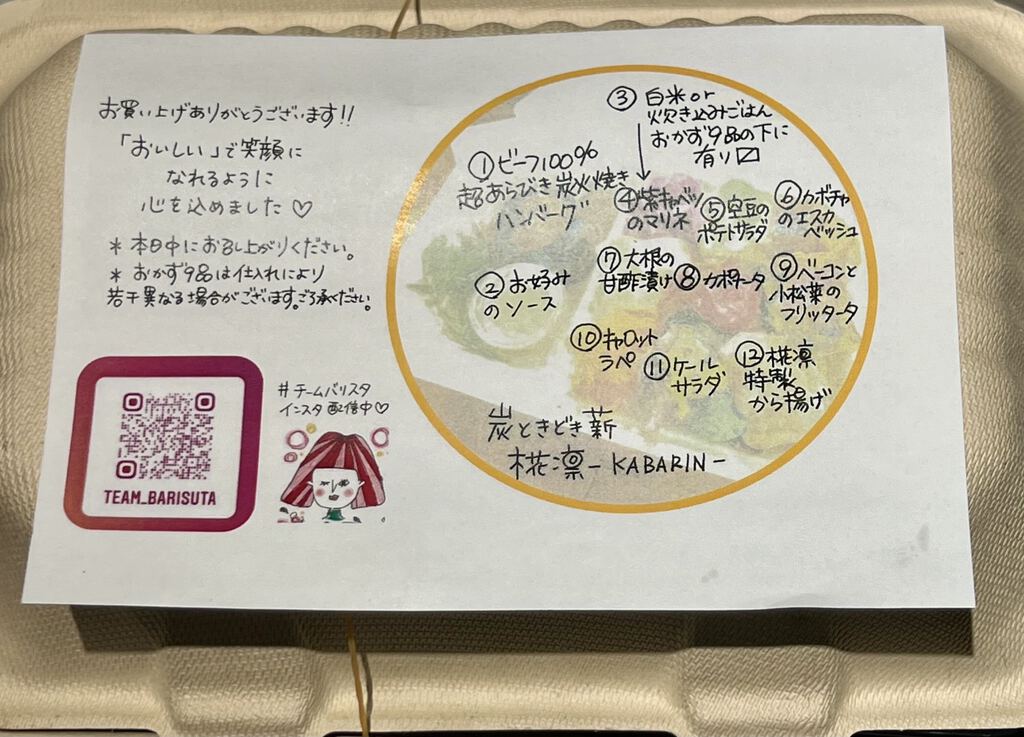 お買い上げありがとうございます!!
「おいしい」で笑顔に
なれるように
心を込めました♡
＊本日中にお召し上がりください。
＊おかず9品は仕入れにより
若干異なる場合がございます。ご了承ください。
TEAM_BARISUTA
#チームバリスタ
インスタ配信中♡
①ビーフ100%
超あらびき炭火焼き
ハンバーグ
②お好み
のソース
③白米or
炊き込みごはん
おかず9品の下に
有り
④紫キャベツ
のマリネ
⑤空豆の
ポテトサラダ
⑥カボチャ
のエスカ
ベッシュ
⑦大根の
甘酢漬け
⑧カポナータ
⑨ベーコンと
小松菜の
フリッタータ
⑩キャロット
ラペ
⑪ケール
サラダ
⑫椛凛
特製
から揚げ
炭ときどき薪
椛凛-KABARIN-